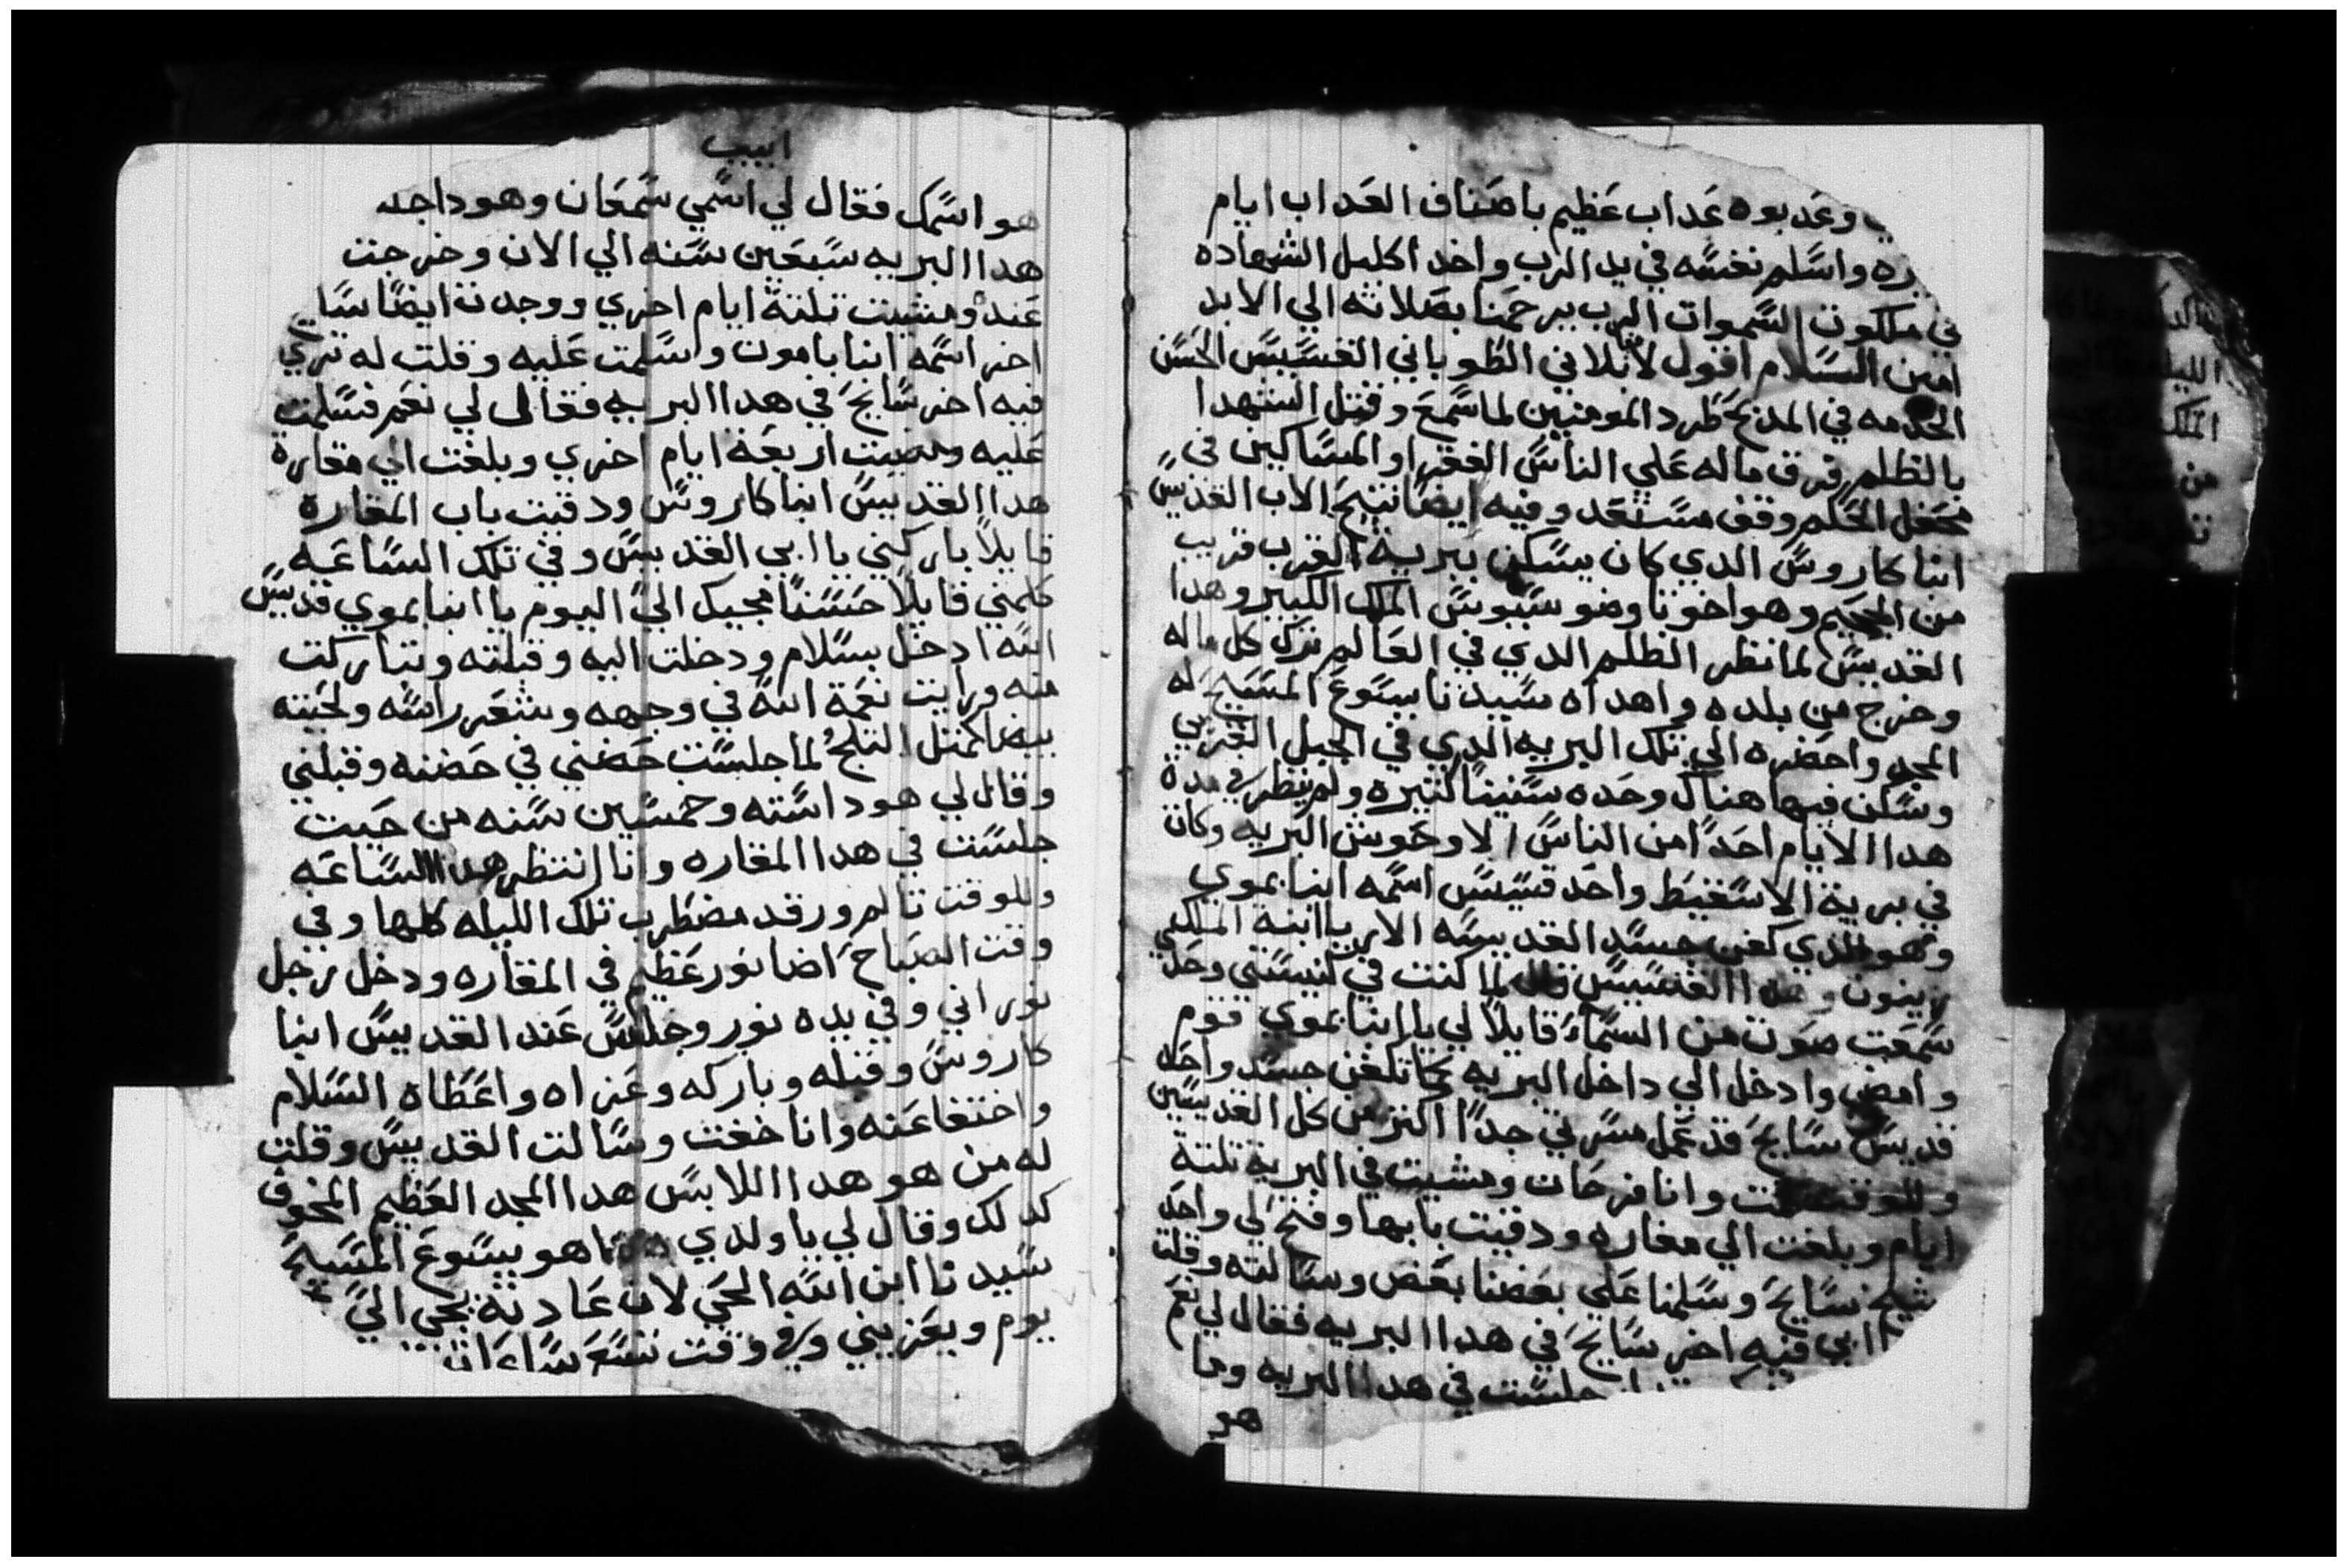 وعدبوه عداب عظيم باصناف العداب ايام
واسلم نفسه في يد الرب واخد اكليل الشهاده
في ملكوت السموات الرب يرحمنا بصلاته الي الابد
امين السلام اقول لانلاني الطوباني القسيس الحسن
الخدمه في المدبح طرد المومنين لما سمع وقتل الشهدا
بالظلم فرق ماله علي الناس الفقرا والمساكين في
محفل الحكم وقف مستعد وفيه ايضا تنيح الاب القديس
انبا كاروس الدي كان يسكن ببرية الغرب قريب
من الججيم وهو اخو تاوضوسيوس الملك الكبير وهدا
القديس لما نظر الظلم الدي في العالم ترك كل ماله
وخرج من بلده واهداه سيدنا يسوع المسيح له
المجد واحضره الي تلك البريه الدي في الجبل الغربي
وسكن فيها هناك وحده سنينا كتيره ولم ينظر في مدة
هدا الايام احدا من الناس الا وحوش البريه وكان
في برية الاسقيط واحد قسيس اسمه انبا بموي
وهو الدي كفن جسد القديسه الاريا ابنة الملك
زينون و هدا القسيس قال لما كنت في كنيستي وحدي
سمعت صوت من السماء قايلا لي يا انبا بموي قوم
وامض وادخل الي داخل البريه كما تكفن جسد واحد
قديس سايح قد عمل مسرتي جدا اكتر من كل القديسين
وللوقت قمت وانا فرحان ومشيت في البريه تلتة
ايام وبلغت الي مغاره ودقيت بابها وفتح لي واحد
شيخ سايح وسلمنا علي بعضنا بعض وسالته وقلت
ابي فيه اخر سايح في هدا البريه فقال لي نعم
جلست في هدا البريه وما
هو
ابيب
هو اسمك فقال لي اسمي سمعان وهوداجد
هدا البريه سبعين سنه الي الان وخرجت
عنده ومشيت تلتة ايام اخري ووجدت ايضا سايح
اخر اسمه انبا بامون وسلمت عليه وقلت له تري
فيه اخر سايح في هدا البريه فقال لي نعم فسلمت
عليه ومضيت اربعة ايام اخري وبلغت الي مغارة
هدا القديس انبا كاروس ودقيت باب المغاره
قايلا باركني يا ابي القديس وفي تلك الساعه
كلمني قايلا حسنا مجيك الي اليوم يا انبا بموي قديس
الله ادخل بسلام ودخلت اليه وقبلته وتباركت
منه ورايت نعمة الله في وجهه وشعر راسه ولحيته
بيضا كمتل التلج لما جلست حضني في حضنه وقبلني
وقال لي هودا سته وخمسين سنه من حيت
جلست في هدا المغاره وانا انتظر هدا الساعه
وللوقت تالم ورقد مضطرب تلك الليله كلها وفي
وقت الصباح اضا نور عظيم في المغاره ودخل رجل
نوراني وفي يده نور وجلس عند القديس انبا
كاروس وقبله وباركه وعزاه واعطاه السلام
واختفا عنه وانا خفت وسالت القديس وقلت
له من هو هدا اللابس هدا المجد العظيم المخوف
كدلك وقال لي يا ولدي هدا هو يسوع المسيح
سيدنا ابن الله الحي لان عادته يجي الي
يوم ويعزيني وفي وقت تسع ساعات